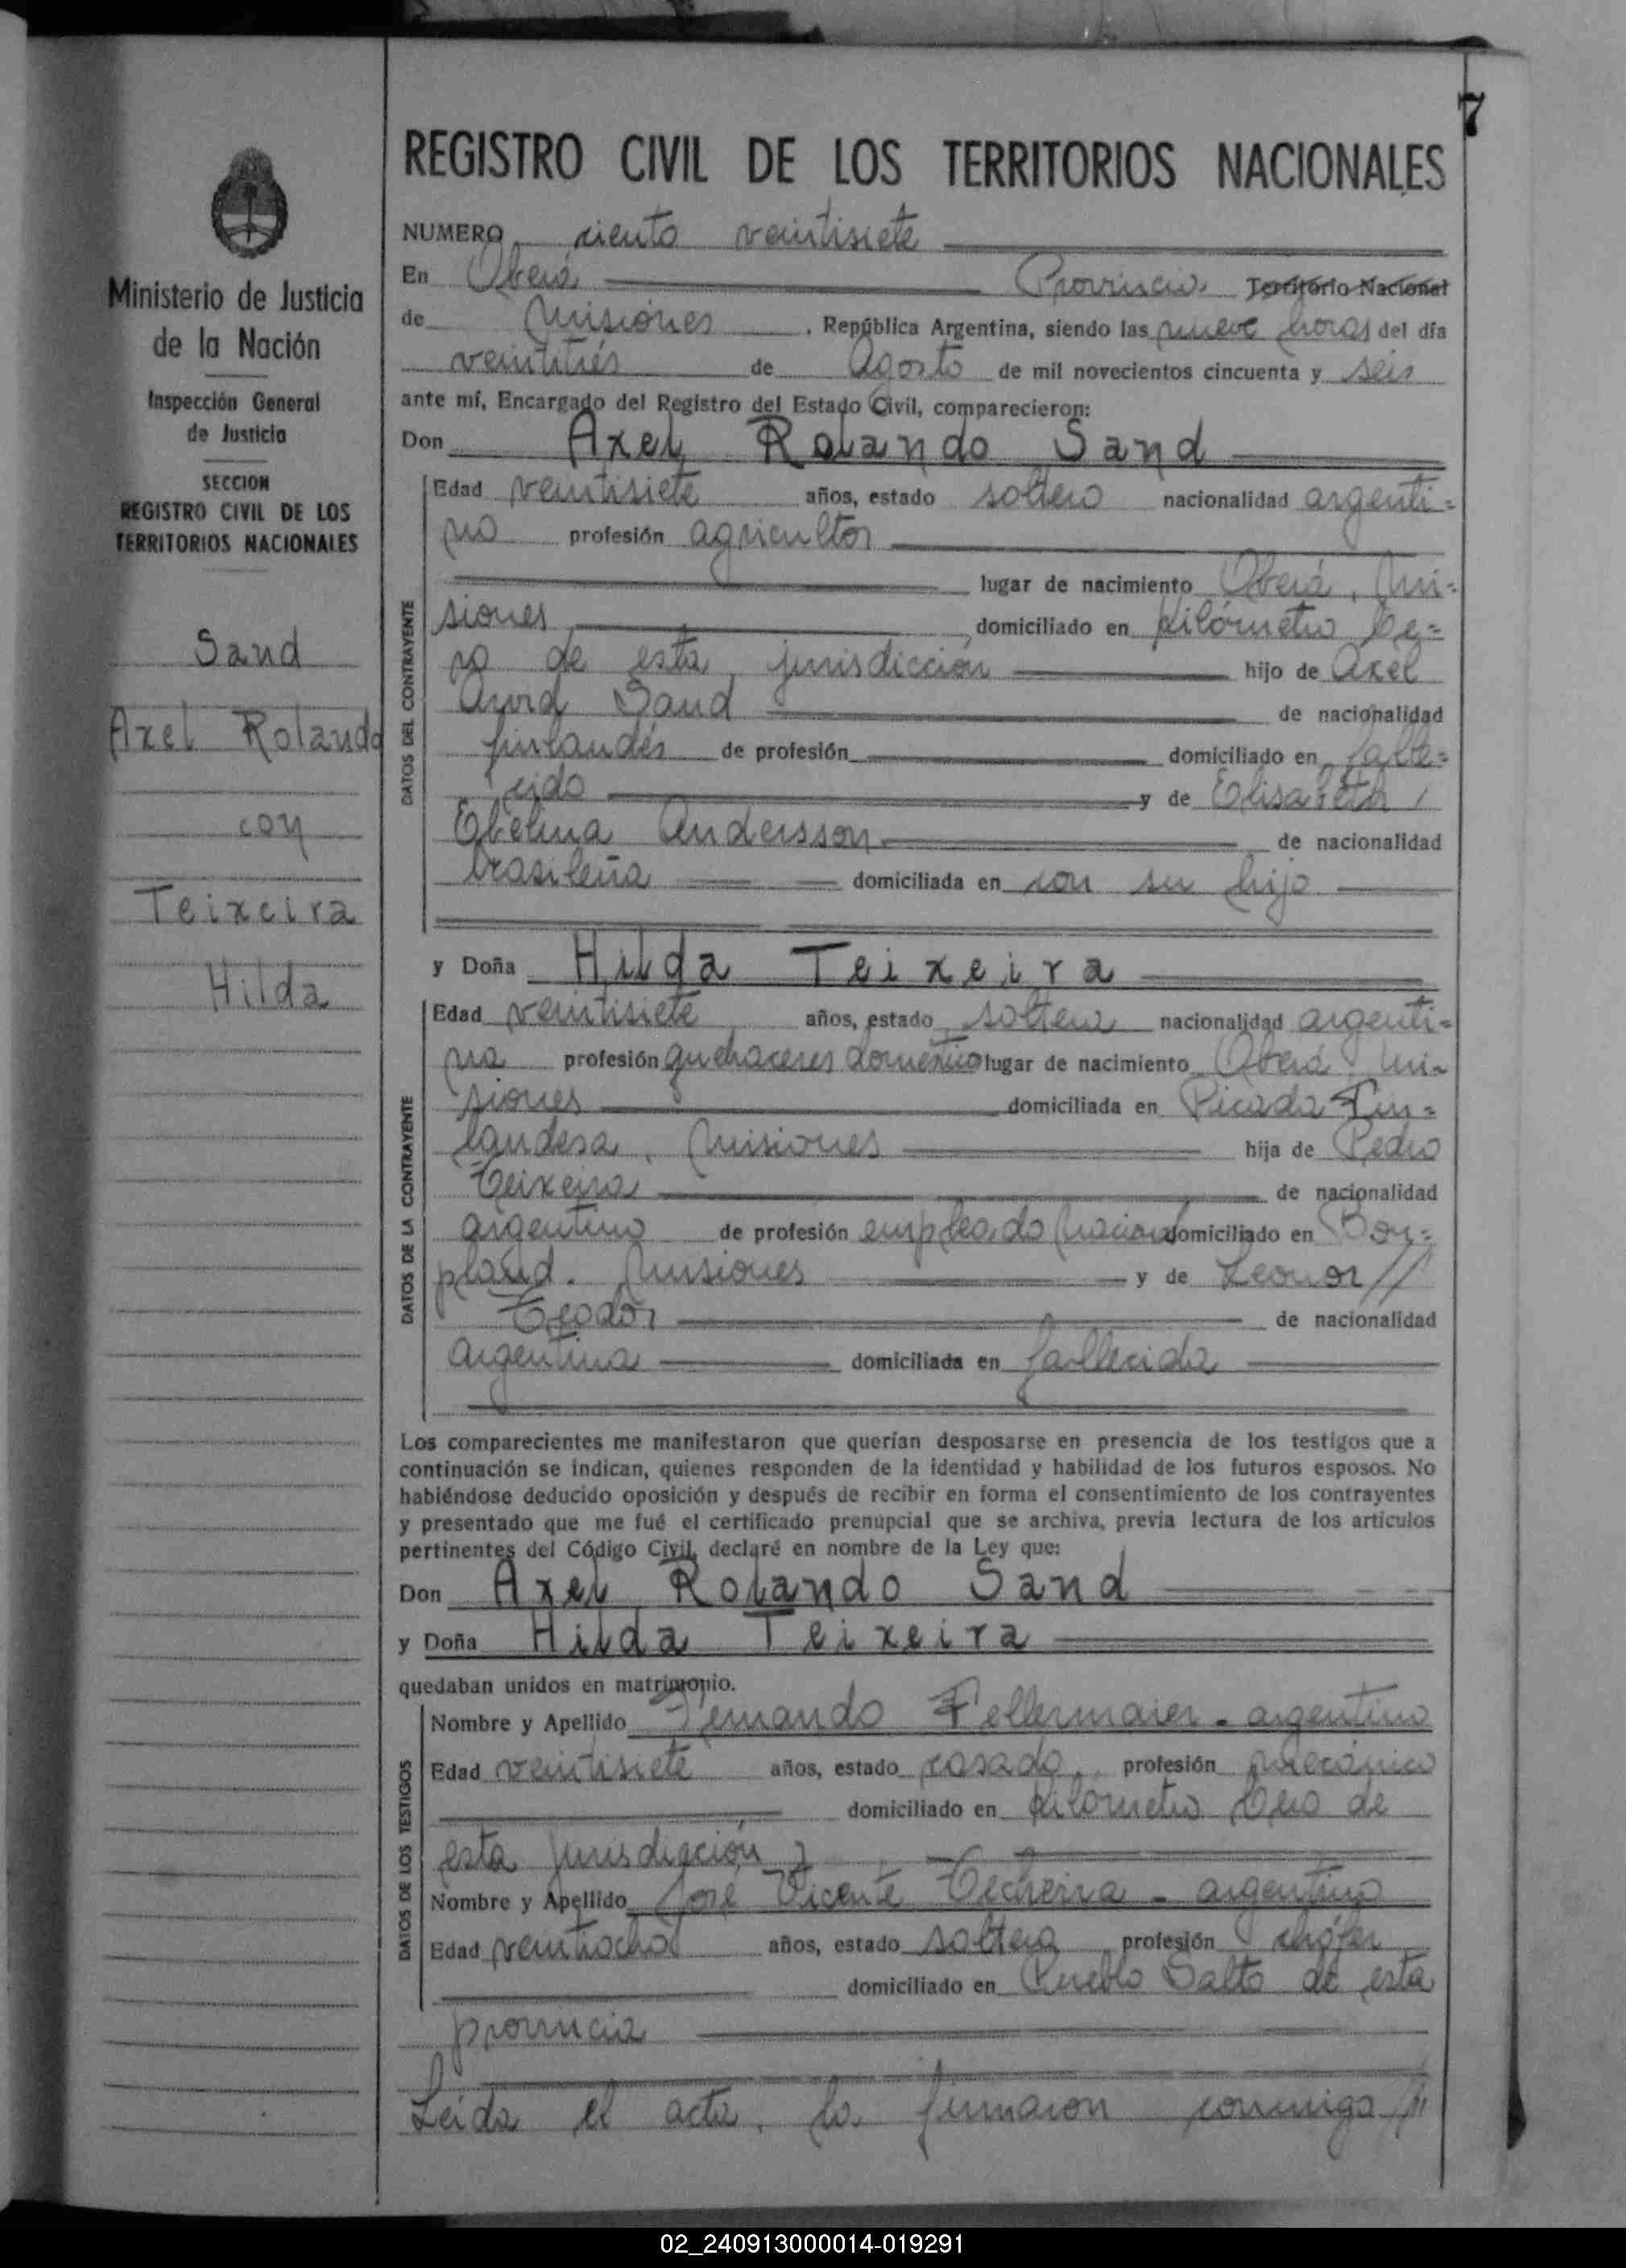 7
Ministerio de Justicia
de la Nación
Inspección General
de Justicia
SECCION
REGISTRO CIVIL DE LOS
TERRITORIOS NACIONALES
Sand
Axel Rolando
con
Teixeira
Hilda
REGISTRO CIVIL DE LOS TERRITORIOS NACIONALES
NUMERO ciento veintisiete
En Oberá Provincia Territorio Nacional
de Misiones, República Argentina, siendo las nueve horas del día
veintitrés de Agosto de mil novecientos cincuenta y seis
ante mí, Encargado del Registro del Estado Civil, comparecieron:
Don Axel Rolando Sand
DATOS DEL CONTRAYENTE
Edad veintisiete años, estado soltero nacionalidad argenti=
no profesión agricultor
lugar de nacimiento Oberá, Mi=
siones domiciliado en kilómetro Ce=
ro de esta jurisdicción hijo de Axel
Arvid Sand de nacionalidad
finlandés de profesión domiciliado en falle=
cido y de Elisabeth
Ebelina Andersson de nacionalidad
brasileña domiciliada en con su hijo
y Doña Hilda Teixeira
DATOS DE LA CONTRAYENTE
Edad veintisiete años, estado soltera nacionalidad argenti=
na profesión quehaceres domésticos lugar de nacimiento Oberá Mi=
siones domiciliada en Picada Fin=
landesa, Misiones hija de Pedro
Teixeira de nacionalidad
argentino de profesión empleado Nacional domiciliado en Bon=
pland. Misiones y de Leonor //
Teodor de nacionalidad
argentina domiciliada en fallecida
Los comparecientes me manifestaron que querían desposarse en presencia de los testigos que a
continuación se indican, quienes responden de la identidad y habilidad de los futuros esposos. No
habiéndose deducido oposición y después de recibir en forma el consentimiento de los contrayentes
y presentado que me fué el certificado prenupcial que se archiva, previa lectura de los artículos
pertinentes del Código Civil, declaré en nombre de la Ley que:
Don Axel Rolando Sand
y Doña Hilda Teixeira
quedaban unidos en matrimonio.
DATOS DE LOS TESTIGOS
Nombre y Apellido Fernando Fellermaier - argentino
Edad veintisiete años, estado casado, profesión mecánico
domiciliado en kilómetro Cero de
esta jurisdicción y
Nombre y Apellido José Vicente - argentino
Edad veintiocho años, estado soltero profesión chófer
domiciliado en Pueblo Salto de esta
provincia
Leída el acta, la firmaron conmigo //
02_240913000014-019291